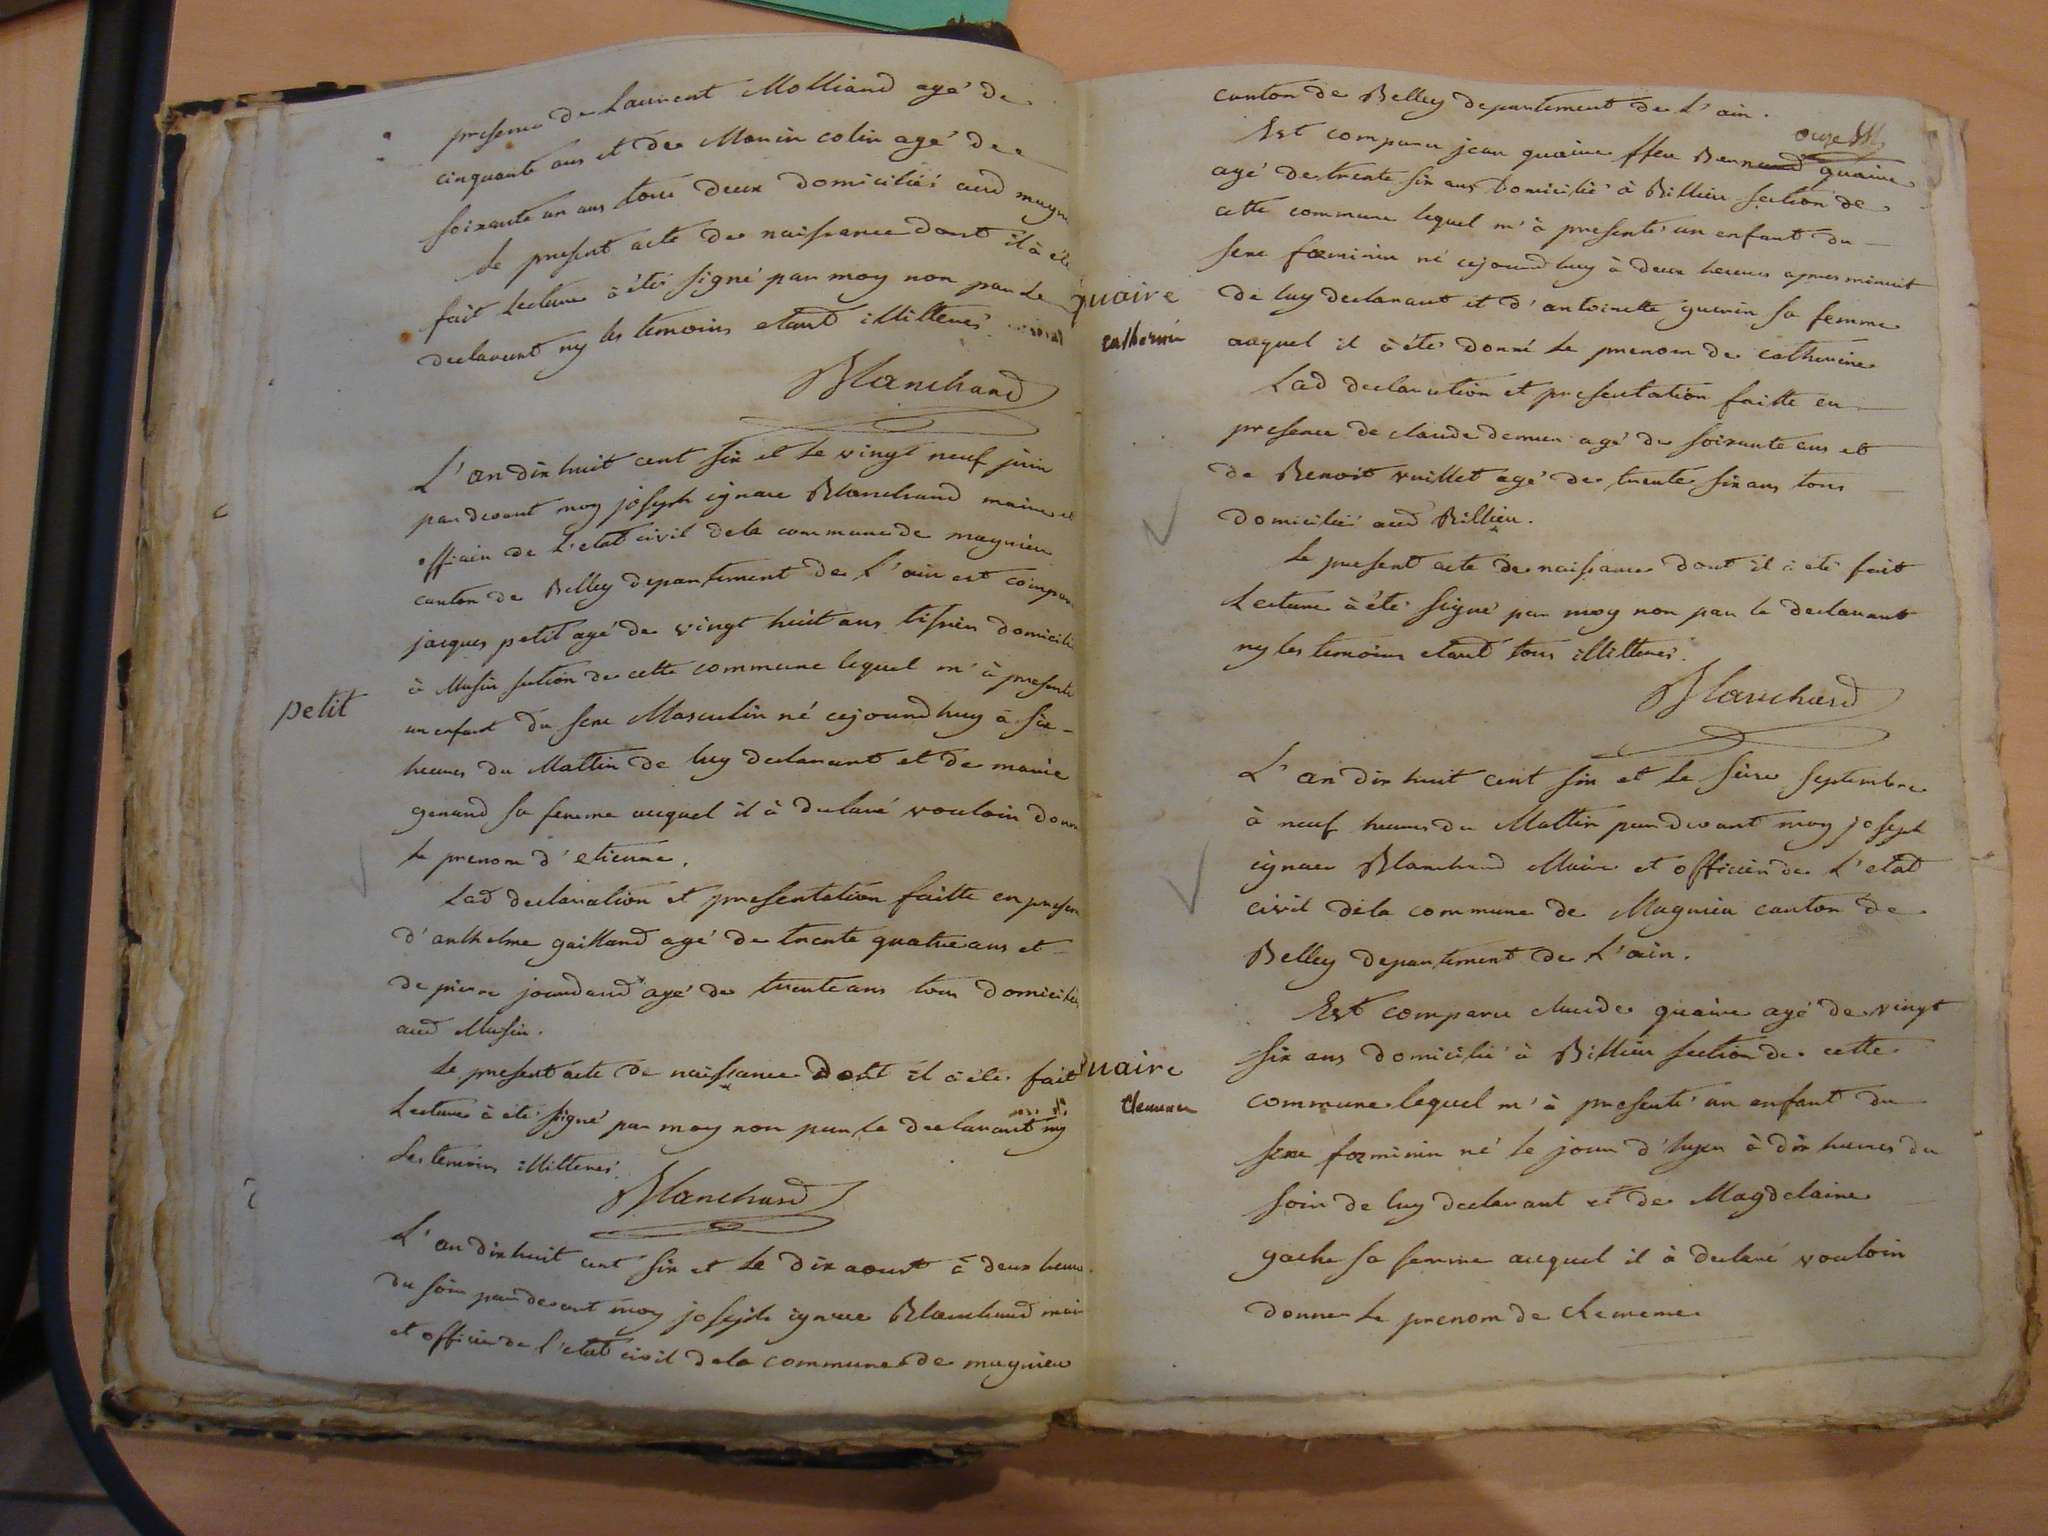 presence de Laurent Molliand agé de
cinquante ans et de Marin colin agé de
soixante un ans tous deux domiciliés aud magn
Le present acte de naissance dont il à été
fait Lecture à été signé par moy non par Le
declarant ny les temoins etant illitterés
Blanchard
L'an dix huit cent six et Le vingt neuf juin
pardevant moy joseph ignace Blanchard maire et
officier de L'etat civil dela commune de magnieu
canton de Belley departement de L'ain est compar
jacques petit agé de vingt huit ans tissier domicilié
à Musin section de cette commune lequel m'à presenté
petit
un enfant du sexe Masculin né cejourdhuy à six
heures du Mattin de luy declarant et de marie
genand sa femme auquel il à declaré vouloir donn
Le prenom d'etienne.
Lad declaration et presentation faitte en presen
d'anthelme gailland agé de trente quatre ans et
de pierre jourdand agé de trente ans tous domiciliés
aud Musin.
Le present acte de naissance dont il à été fait
Lecture à été signé par moy non par Le declarant ny
Les temoins illitterés
Blanchard
L'an dix huit cent six et Le dix aoust à deux heure
du soir pardevant moy joseph ignace Blanchard mair
et officier de l'etat civil dela commune de magnieu
canton de Belley departement de L'ain.
Est comparu jean quaire ffeu Bernard quaire
agé de trente six ans domicilié à Billieu section de
cette commune lequel m'à presenté un enfant du
sexe foeminin né cejourdhuy à deux heures apres minuit
quaire
catherine
de luy declarant et d'antoinette guerin sa femme
auquel il à été donné Le prenom de catherine
Lad declaration et presentation faitte en
presence de claude demen agé de soixante ans et
de Benoit vuillet agé de trente six ans tous
domiciliés aud Billieu.
Le present acte de naissance dont il à été fait
Lecture à été signé par moy non par le declarant
ny les temoins etant tous illitterés.
Blanchard
L'an dix huit cent six et Le seize septembre
à neuf heures du Mattin pardevant moy joseph
ignace Blanchard Maire et officier de L'etat
civil dela commune de Magnieu canton de
Belley departement de L'ain.
Est comparu claude quaire agé de vingt
six ans domicilié à Billieu section de cette
quaire
commune lequel m'à presenté un enfant du
sexe foeminin né le jour d'hyer à dix heures du
soir de luy declarant et de Magdelaine
gache sa femme auquel il à declaré vouloir
donner Le prenom de